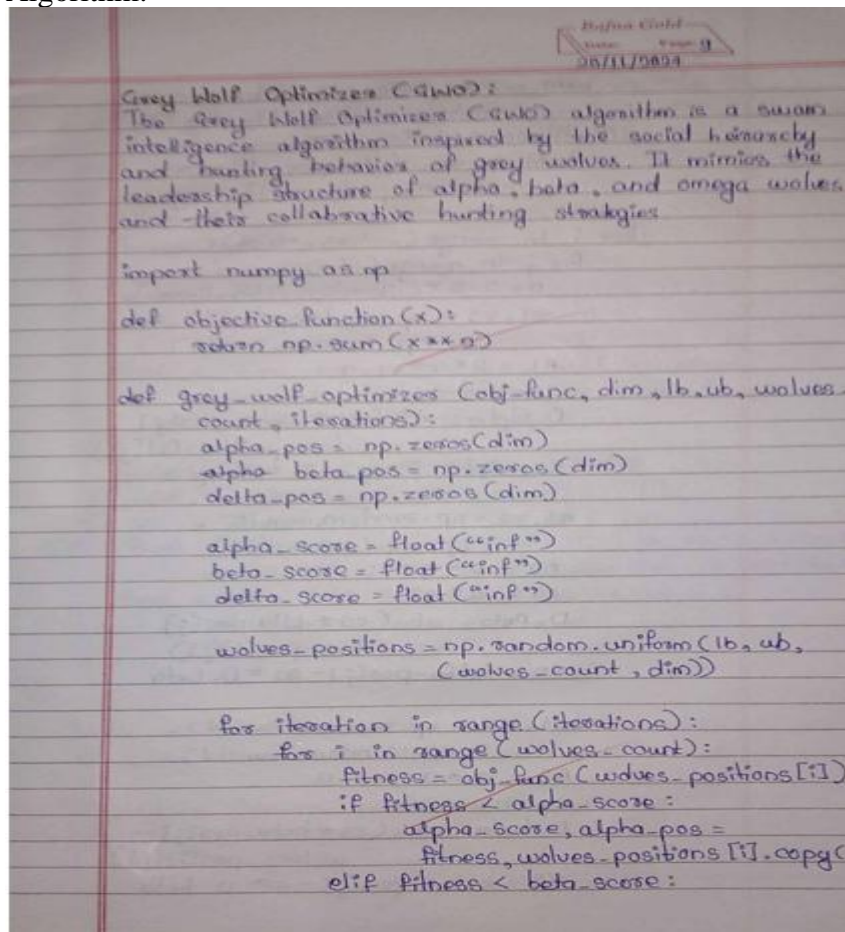 Algorithm:
Date Page 9
20/11/2024
Grey Wolf Optimizer (GWO):
The Grey Wolf Optimizer (GWO) algorithm is a swam
intelligence algorithm inspired by the social heirarchy
and hunting behavior of grey wolves. It mimics the
leadership structure of alpha, beta, and omega wolves
and their collabrative hunting strategies
import numpy as np
def objective_function (x):
return np.sum (x**2)
def grey_wolf_optimizer (obj_func, dim, lb, ub, wolves_
count, iterations):
alpha_pos = np.zeros(dim)
alpha beta_pos = np.zeros (dim)
delta_pos = np.zeros (dim)
alpha_score = float ("inf")
beta_score = float ("inf")
delta_score = float ("inf")
wolves_positions = np.random.uniform (lb, ub,
(wolves_count, dim))
for iteration in range (iterations):
for i in range (wolves_count):
fitness = obj_func (wolves_positions [i])
if fitness < alpha_score:
alpha_score, alpha_pos =
fitness, wolves_positions [i].copy(
elif fitness < beta_score: